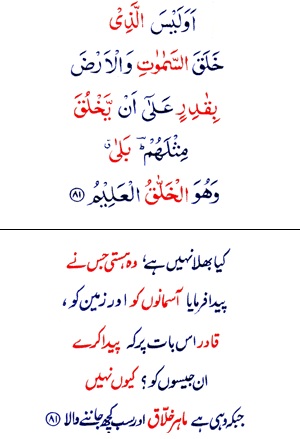 اَوَلَیْسَ الَّذِیْ
خَلَقَ السَّمٰوٰتِ وَالْاَرْضَ
بِقٰدِرٍ عَلٰۤی اَنْ یَّخْلُقَ
مِثْلَهُمْ ؕؔ بَلٰی ۗ
وَهُوَ الْخَلّٰقُ الْعَلِیْمُ ﴿۸۱﴾
کیا بھلا نہیں ہے، وہ ہستی جس نے
پیدا فرمایا آسمانوں کو اور زمین کو ،
قادر اس بات پر کہ پیدا کرے
ان جیسوں کو ؟ کیوں نہیں
جبکہ وہی ہے ماہر خلّاق اور سب کچھ جاننے والا ﴿۸۱﴾